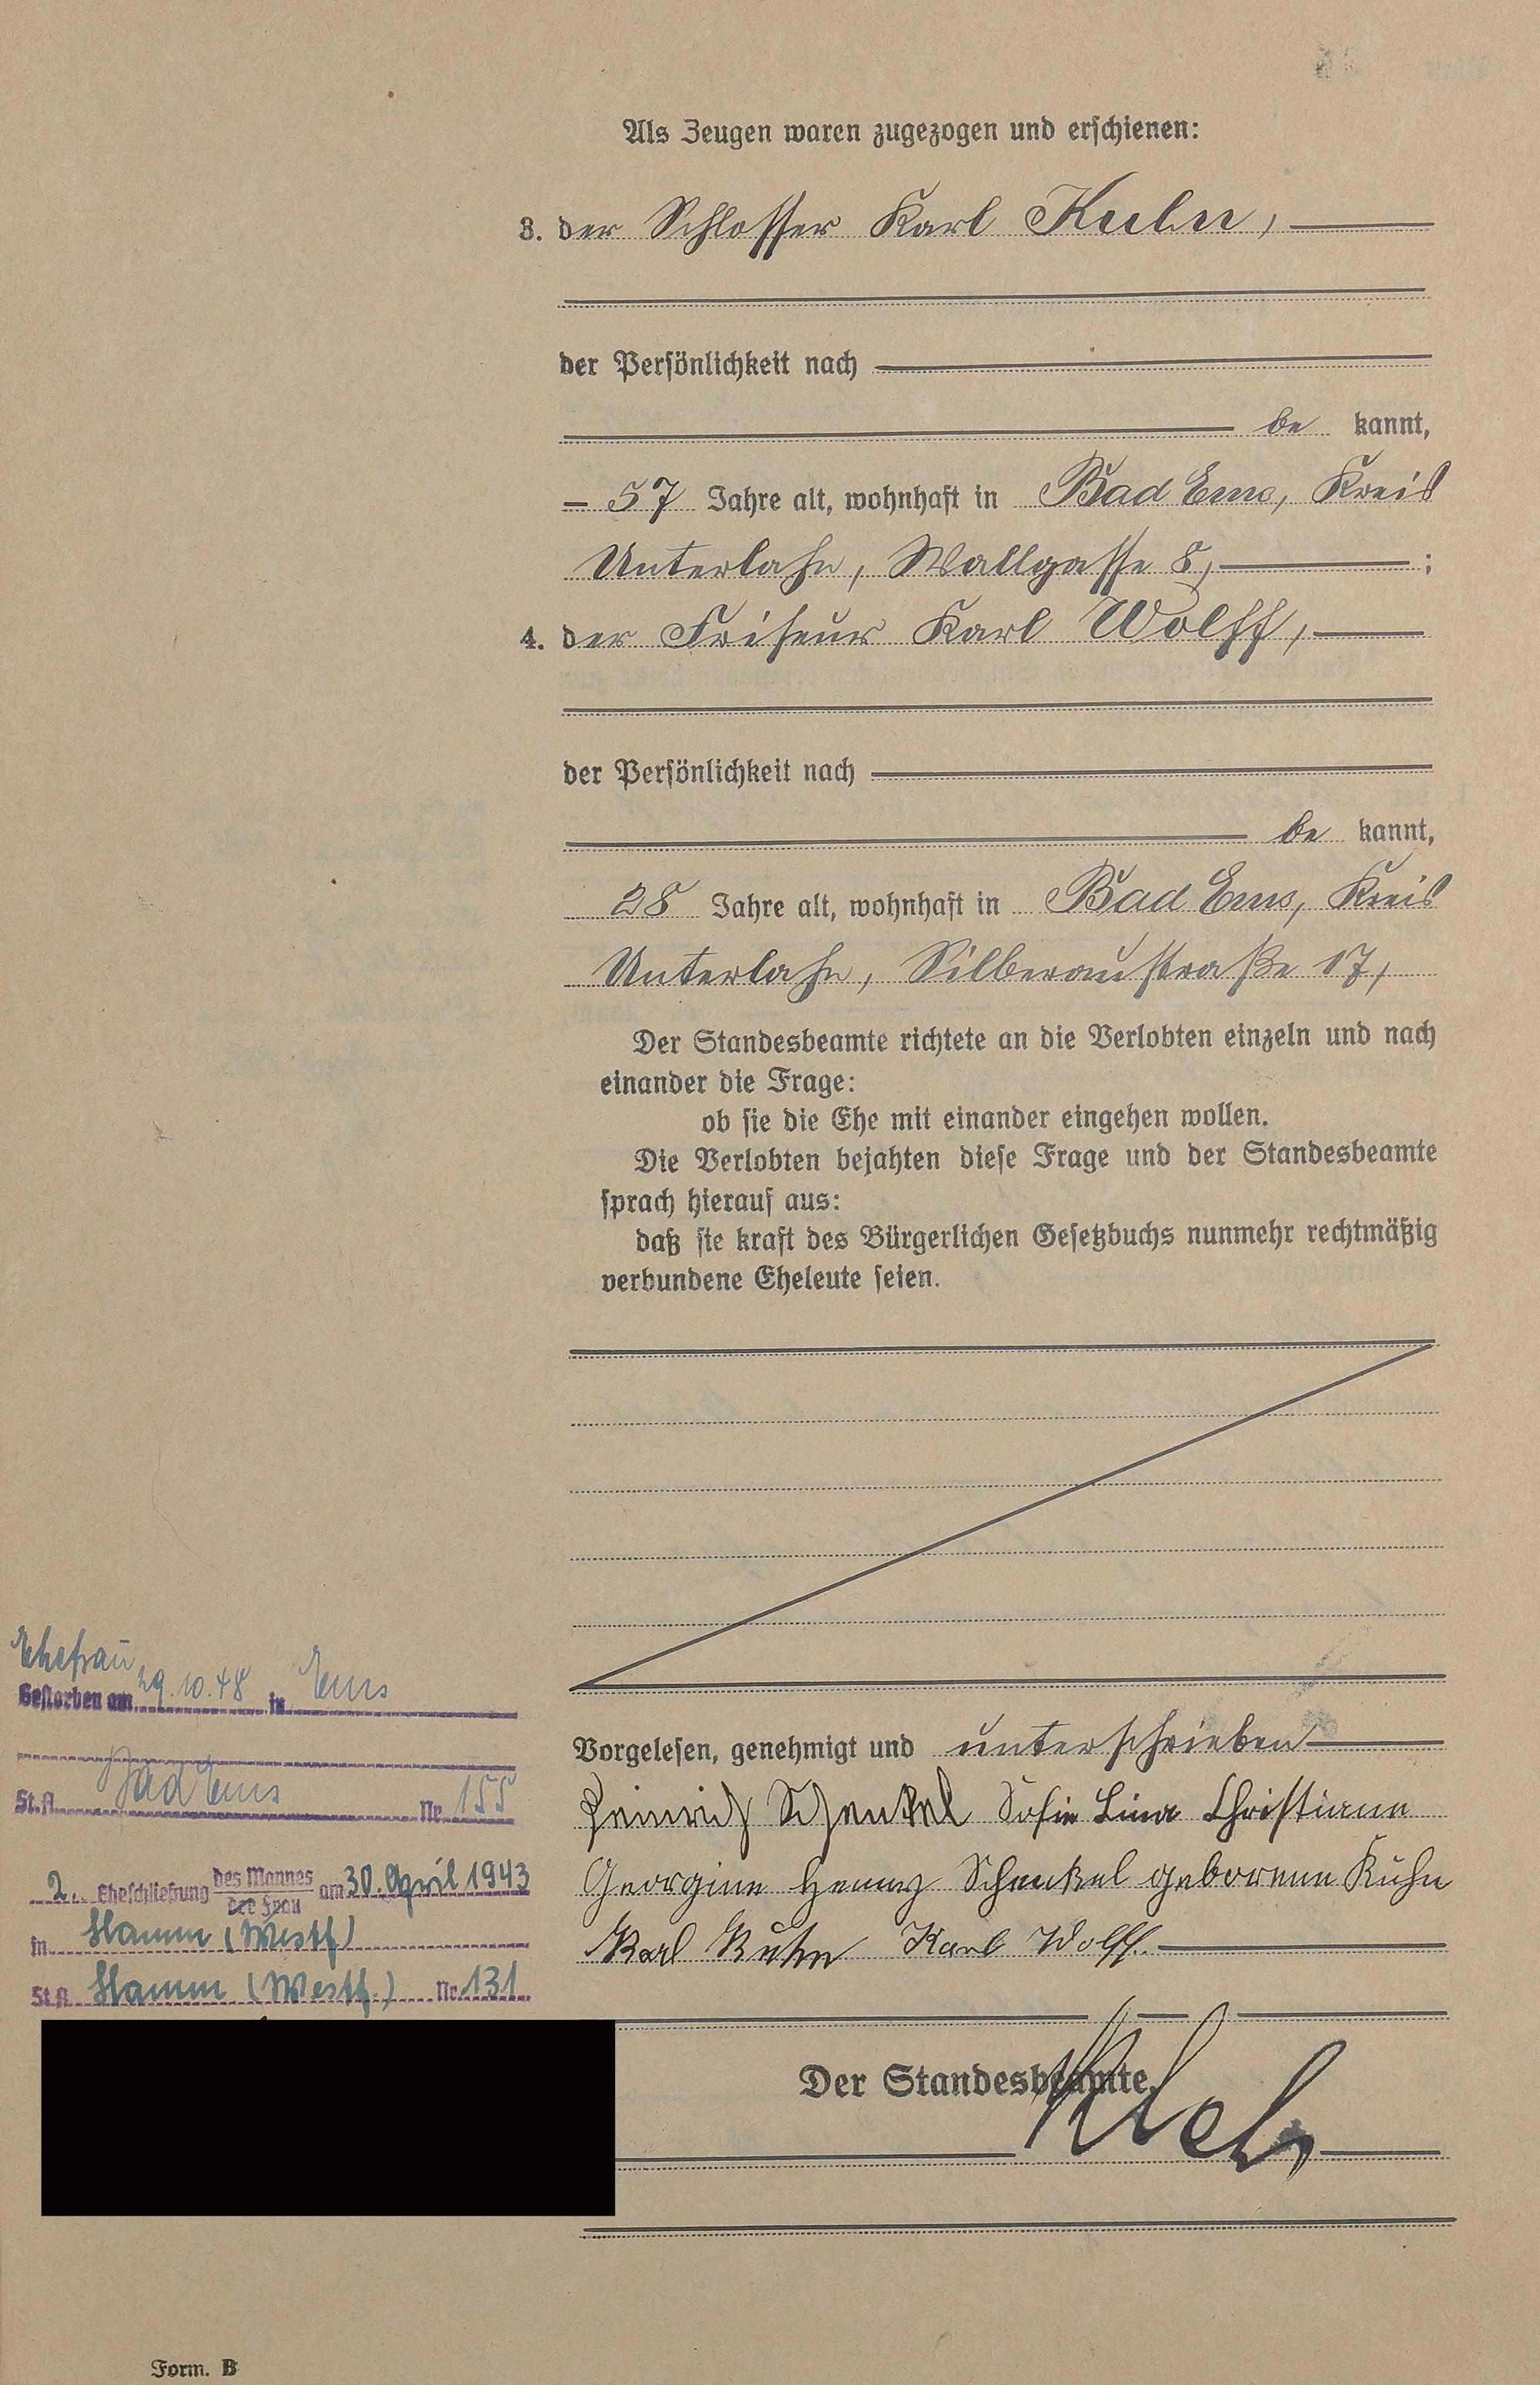 Als Zeugen waren zugezogen und erschienen:
3. der Schlosser Karl Kuhn,
der Persönlichkeit nach
be kannt,
57 Jahre alt, wohnhaft in Bad Ems, Kreis
Unterlahn, Wallgasse 8, ;
4. der Friseur Karl Wolff,
der Persönlichkeit nach
be kannt,
28 Jahre alt, wohnhaft in Bad Ems, Kreis
Unterlahn, Silberaustraße 17,
Der Standesbeamte richtete an die Verlobten einzeln und nach
einander die Frage:
ob sie die Ehe mit einander eingehen wollen.
Die Verlobten bejahten diese Frage und der Standesbeamte
sprach hierauf aus:
daß sie kraft des Bürgerlichen Gesetzbuchs nunmehr rechtmäßig
verbundene Eheleute seien.
Vorgelesen, genehmigt und unterschrieben
Heinrich Schenkel Sofie Lina Christiane
Georgine Henny Schenkel geborene Kuhn
Karl Kuhn Karl Wolff.
Der Standesbeamte.
Ehefrau
Gestorben am 29.10.48 in Ems
St.A. Bad Ems Nr. 155
2. Eheschließung des Mannes / der Frau am 30. April 1943
in Hamm (Westf)
St.A. Hamm (Westf.) Nr. 131
Form. B